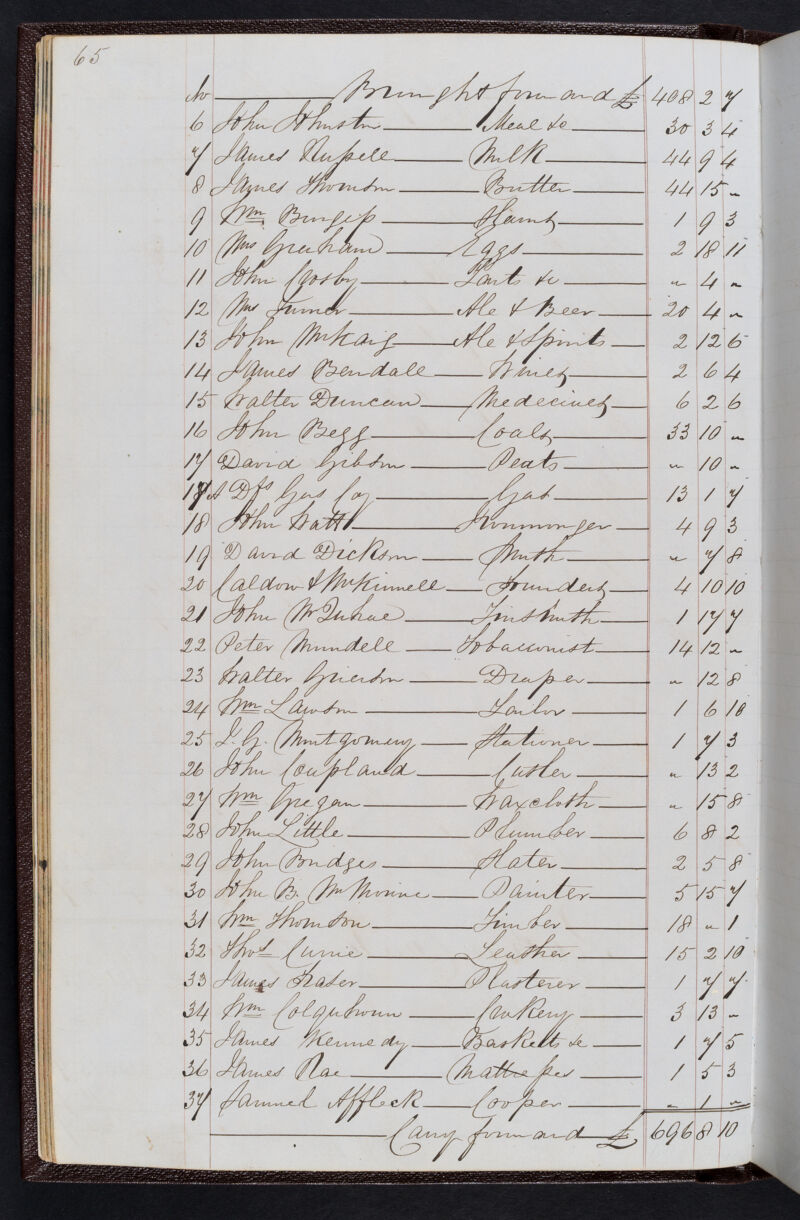 65
No Brought forward £ 408 2 7
6 John Johnston Meal &c 30 3 4
7 James Russell Milk 44 9 4
8 James Thomson Butter 44 15 "
9 Wm Burgess Starch 1 9 3
10 Mrs Graham Eggs 2 18 11
11 John Crosby Tarts &c " 4 "
12 Mrs Turner Ale & Beer 20 4 "
13 John McKaig Ale & Spirits 2 12 6
14 James Bendale Wines 2 6 4
15 Walter Duncan Medecines 6 2 6
16 John Begg Coals 33 10 "
17 David Gibson Peats " 10 "
17A Dfs Gas Coy Gas 13 1 7
18 John Watt Ironmonger 4 9 3
19 David Dickson Smith " 7 8
20 Caldow & McKinnell Founders 4 10 10
21 John McQuhae Tinsmith 1 17 7
22 Peter Mundell Tobacconist 14 12 "
23 Walter Grierson Draper " 12 8
24 Wm Lawson Tailor 1 6 10
25 J. G. Montgomery Stationer 1 7 3
26 John Coupland Cutler " 13 2
27 Wm Gregan Waxcloth " 15 8
28 John Little Plumber 6 8 2
29 John Bridges Slater 2 5 8
30 John B. McMorine Painter 5 15 7
31 Wm Thomson Timber 18 " 1
32 Thos Currie Leather 15 2 10
33 James Fraser Plasterer 1 7 7
34 Wm Colquhoun Crokery 3 13 "
35 James Kennedy Baskets &c 1 7 5
36 James Rae 1 5 3
37 Samuel Affleck Cooper " 1 "
Carry forward £ 696 8 10